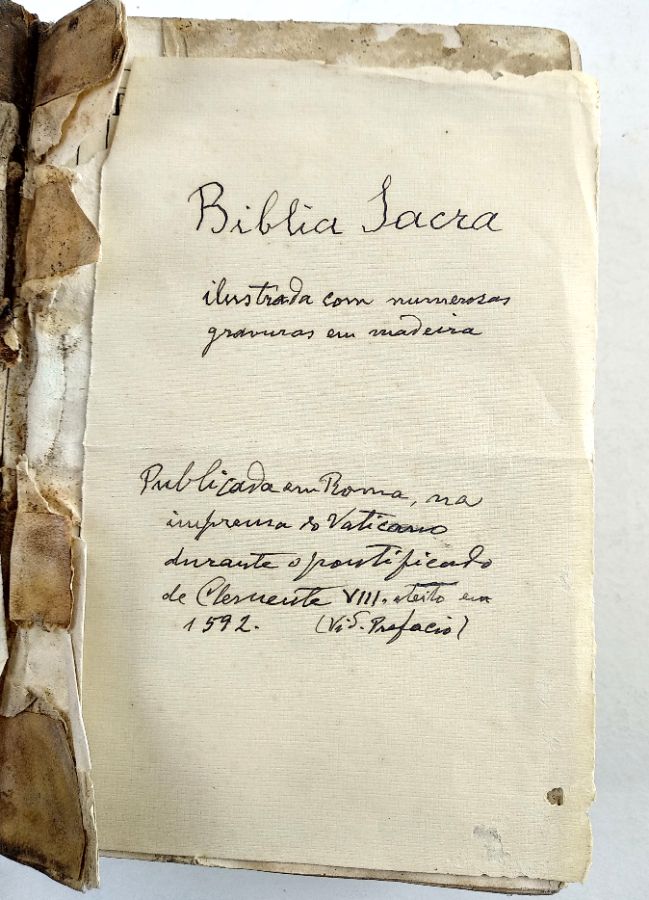 Biblia Sacra
ilustrada com numerosas
gravuras em madeira
Publicada em Roma, na
imprensa do Vaticano
durante o pontificado
de Clemente VIII, eleito em
1592. (Vid. Prefacio)